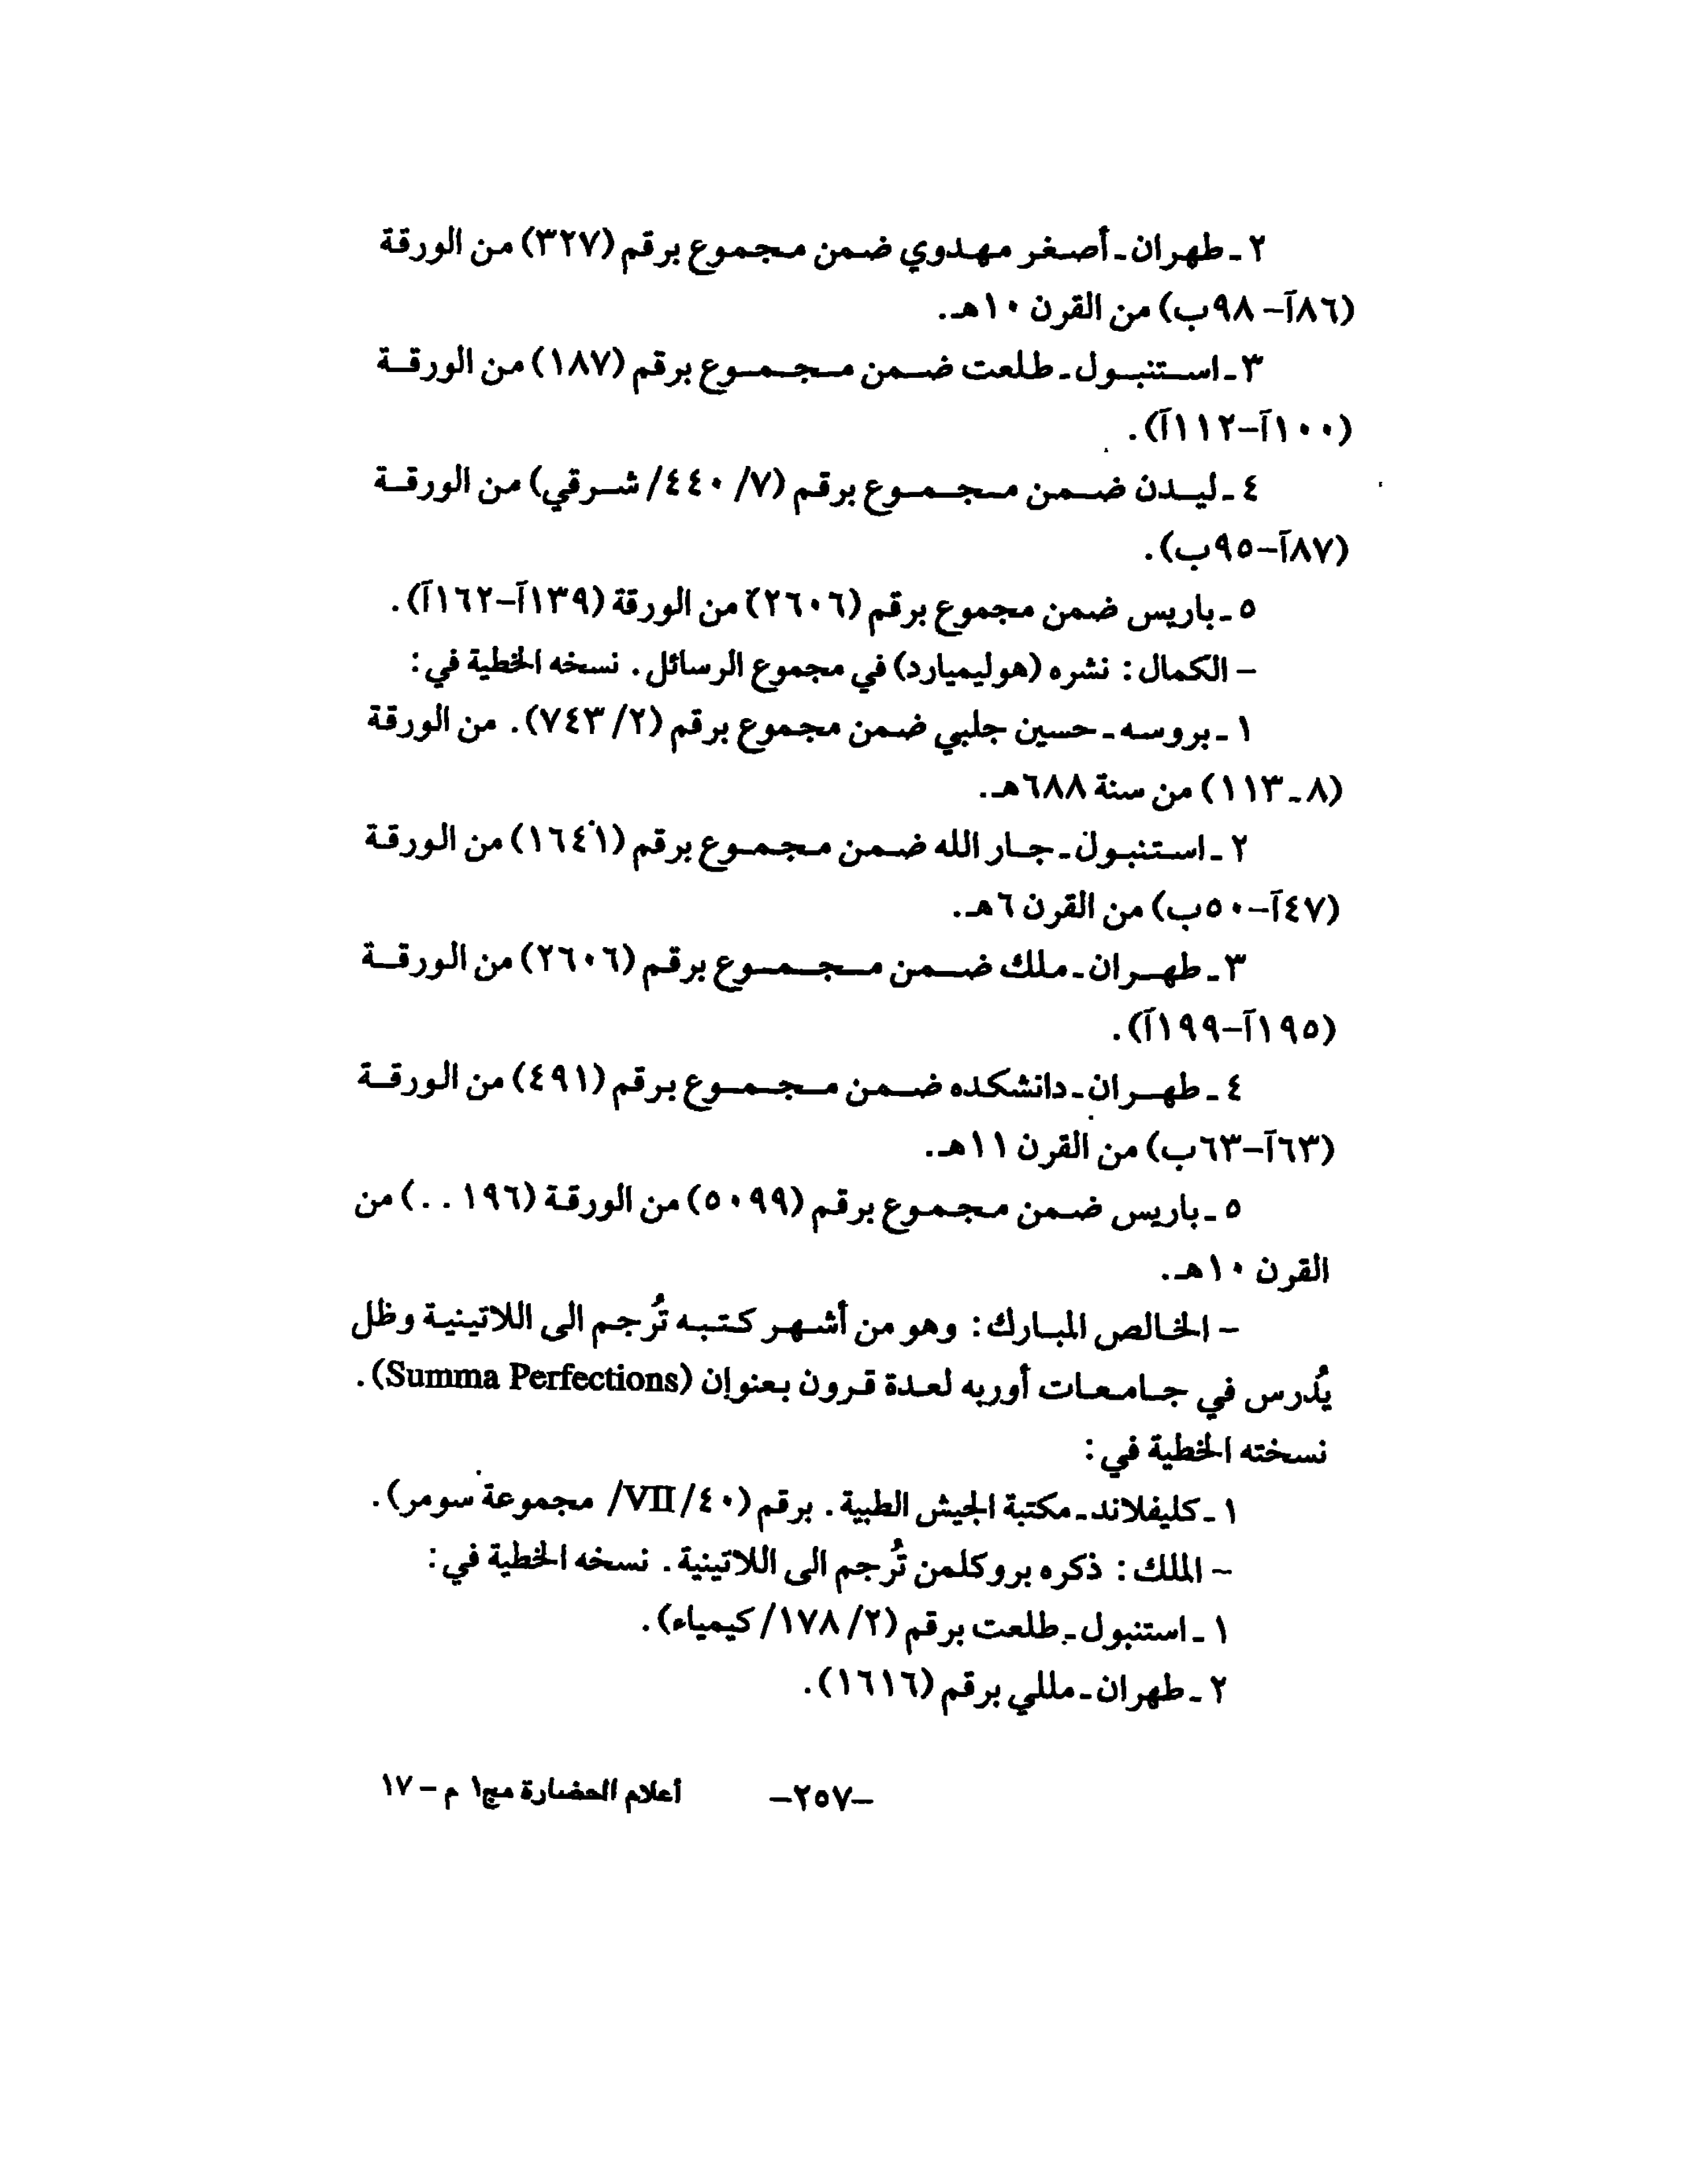 ٢ ـ طهران ـ أصغر مهدوي ضمن مجموع برقم (٣٢٧) من الورقة
(٨٦آ– ٩٨ب) من القرن ١٠هـ.
٣ ـ استنبول ـ طلعت ضمن مجموع برقم (١٨٧) من الورقة
(١٠٠آ–١١٢آ).
٤ ـ ليدن ضمن مجموع برقم (٧/ ٤٤٠/ شرقي) من الورقة
(٨٧آ–٩٥ب).
٥ ـ باريس ضمن مجموع برقم (٢٦٠٦) من الورقة (١٣٩آ–١٦٢آ).
– الكمال: نشره (هوليميارد) في مجموع الرسائل. نسخه الخطية في:
١ ـ بروسه ـ حسين جلبي ضمن مجموع برقم (٢/ ٧٤٣). من الورقة
(٨ ـ ١١٣) من سنة ٦٨٨هـ.
٢ ـ استنبول ـ جار الله ضمن مجموع برقم (١٦٤١) من الورقة
(٤٧آ–٥٠ب) من القرن ٦هـ.
٣ ـ طهران ـ ملك ضمن مجموع برقم (٢٦٠٦) من الورقة
(١٩٥آ–١٩٩آ).
٤ ـ طهران ـ دانشكده ضمن مجموع برقم (٤٩١) من الورقة
(٦٣آ–٦٣ب) من القرن ١١هـ.
٥ ـ باريس ضمن مجموع برقم (٥٠٩٩) من الورقة (١٩٦ . .) من
القرن ١٠هـ.
– الخالص المبارك: وهو من أشهر كتبه تُرجم الى اللاتينية وظل
يُدرس في جامعات أوربه لعدة قرون بعنوان (Summa Perfections).
نسخته الخطية في:
١ ـ كليفلاند ـ مكتبة الجيش الطبية. برقم (٤٠/VII/ مجموعة سومر).
– الملك: ذكره بروكلمن تُرجم الى اللاتينية. نسخه الخطية في:
١ ـ استنبول ـ طلعت برقم (٢/ ١٧٨/ كيمياء).
٢ ـ طهران ـ مللي برقم (١٦١٦).
–٢٥٧– أعلام الحضارة مج١ م – ١٧